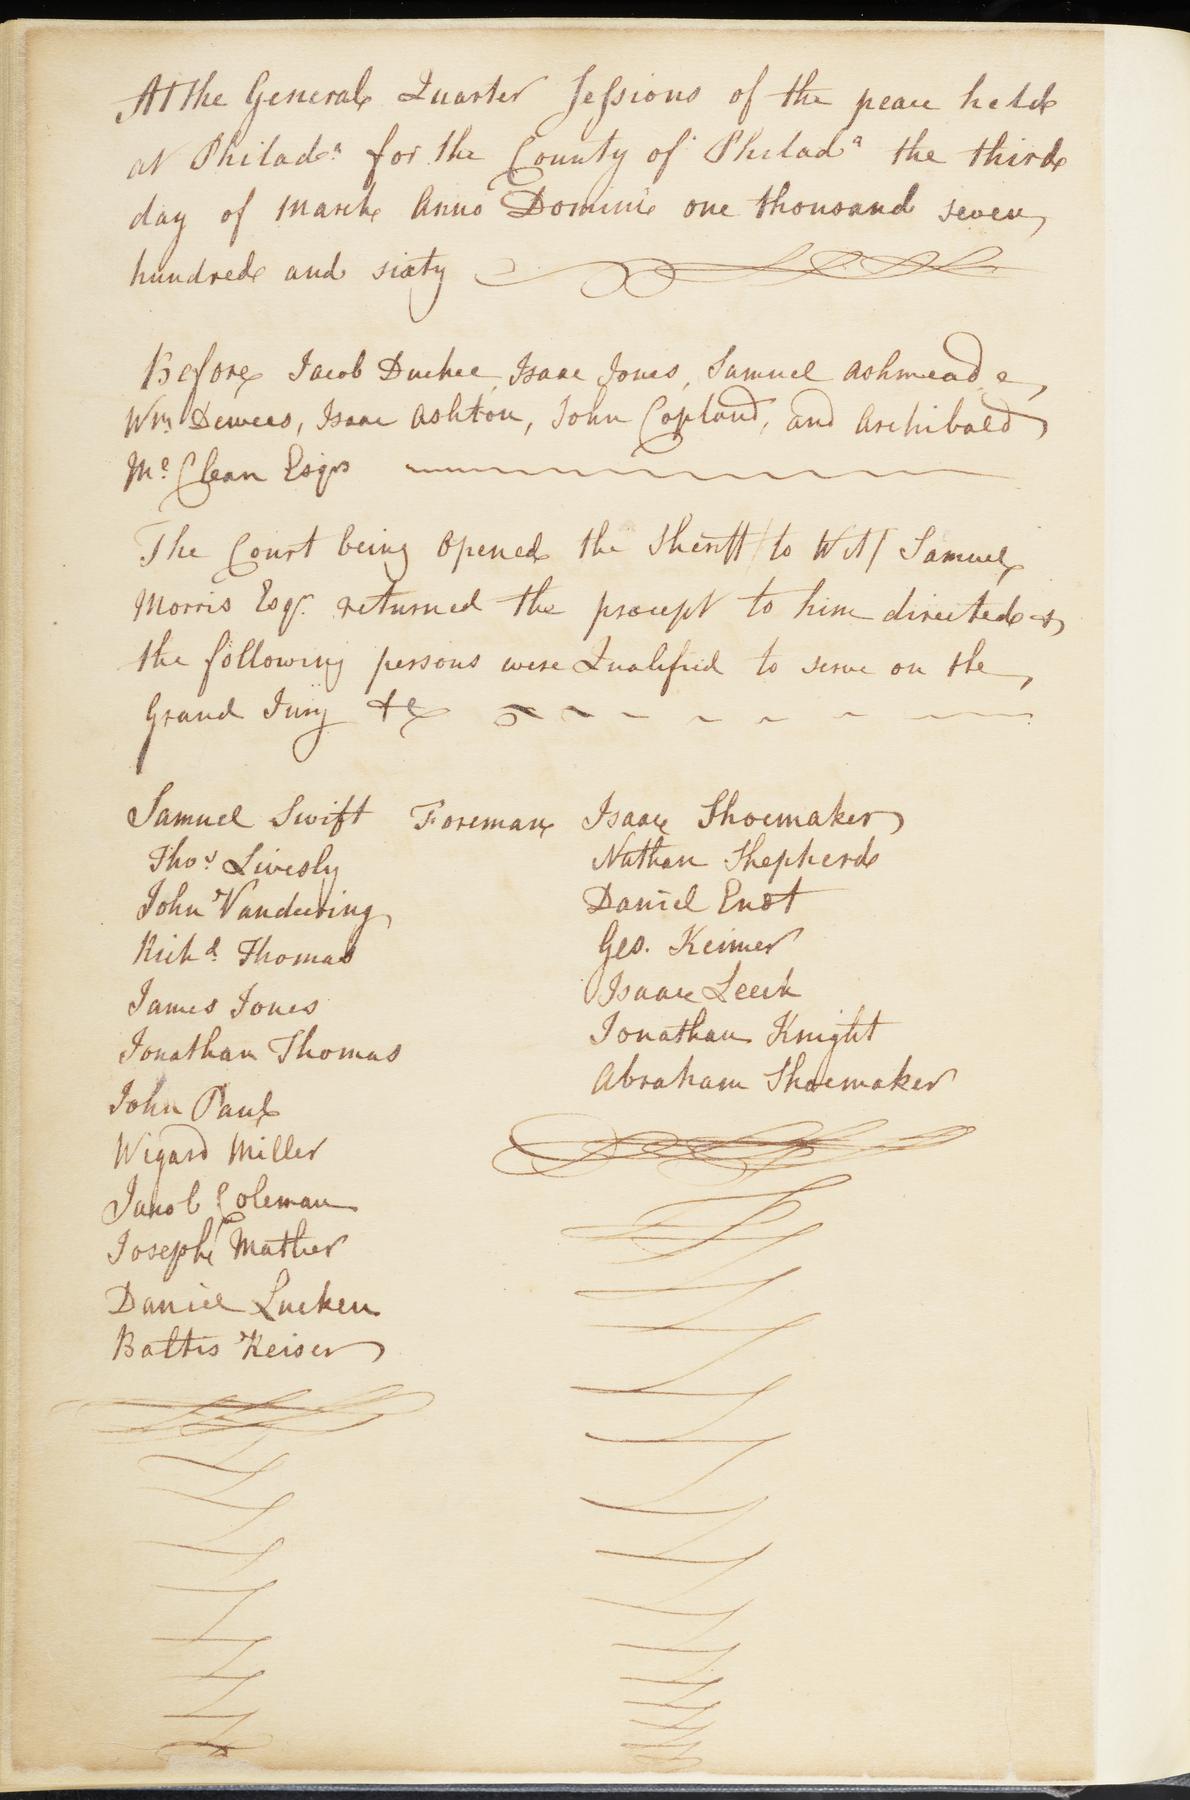 At the General Quarter Sessions of the peace held
at Philada. for the County of Philada the third
day of March Anno Domini one thousand seven
hundred and sixty
Before Jacob Duchee, Isaac Jones, Samuel Ashmead
Wm Dewees, Isaac Ashton, John Copland, and Archibald
Mc. Clean Esqrs
The Court being Opened the Sheriff /to Wit/ Samuel
Morris Esqr. returned the precept to him directed &
the following persons were Qualified to serve on the
Grand Jury &c
Samuel Swift Foreman
Thos. Livesly
John Vandeering
Richd. Thomas
James Jones
Jonathan Thomas
John Paul
Wigard Miller
Jacob Coleman
Joseph Mather
Daniel Lucken
Baltis Keiser
Isaac Shoemaker
Nathan Shepherd
Daniel Enot
Geo. Keimer
Isaac Leech
Jonathan Knight
Abraham Shoemaker